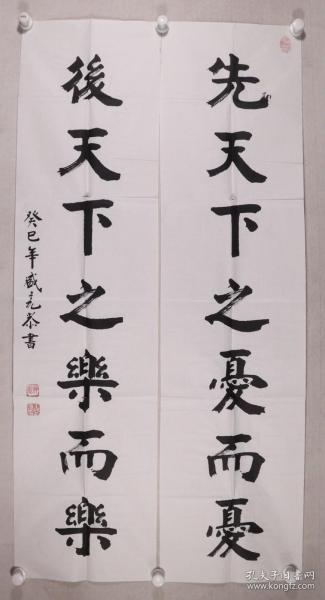 先天下之憂而憂
後天下之樂而樂
癸巳年盛元恭書
孔夫子旧书网